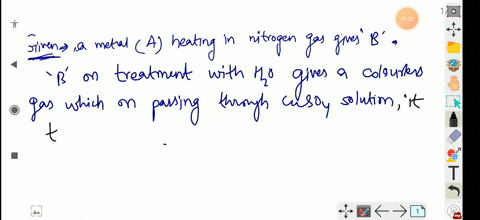 Given → a metal (A) heating in nitrogen gas gives 'B'.
'B' on treatment with H2O gives a colourless
gas which on passing through CuSO4 solution, it
t
1
T